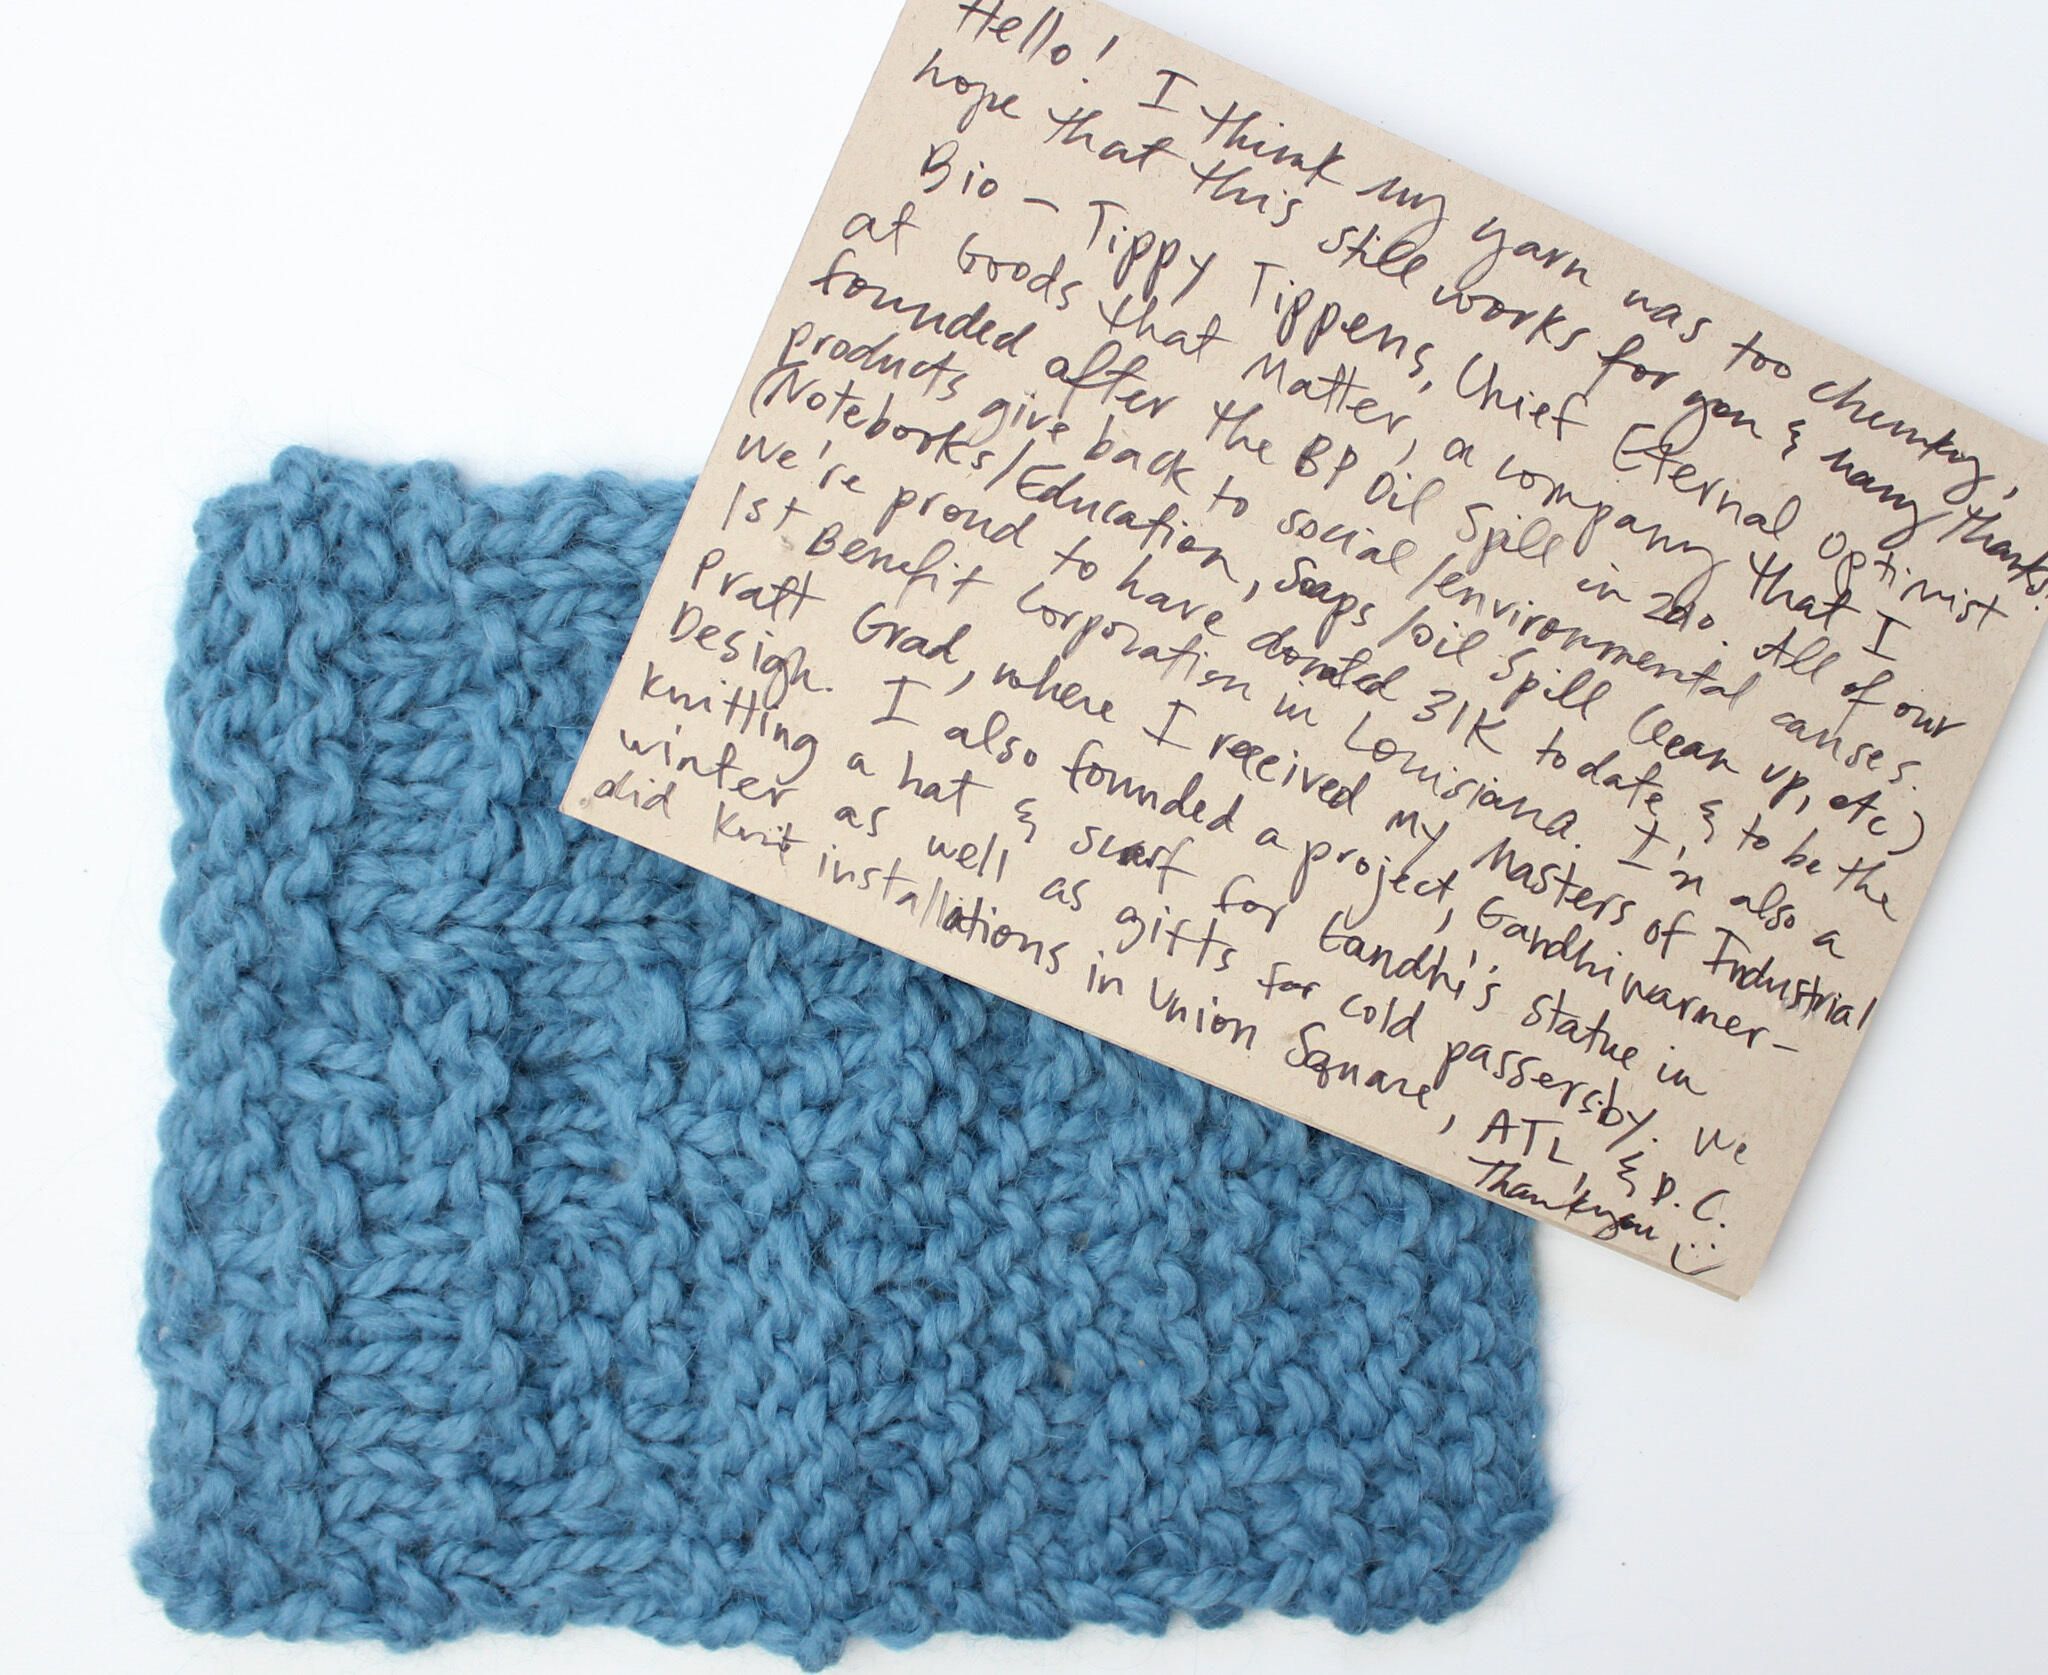 Hello! I think my yarn was too chunky,
hope that this still works for you & many thanks!
Bio – Tippy Tippens, Chief Eternal Optimist
at Goods that Matter, a company that I
founded after the BP Oil Spill in 2010. All of our
products give back to social/environmental causes.
(Notebooks/Education, Soaps/Oil Spill Clean up, etc)
We're proud to have donated 31K to date, & to be the
1st Benefit Corporation in Louisiana. I'm also a
Pratt Grad, where I received my Masters of Industrial
Design. I also founded a project, Gandhiwarmer–
knitting a hat & scarf for Gandhi's statue in
winter as well as gifts for cold passersby. We
did knit installations in Union Square, ATL, & D.C.
Thankyou :)